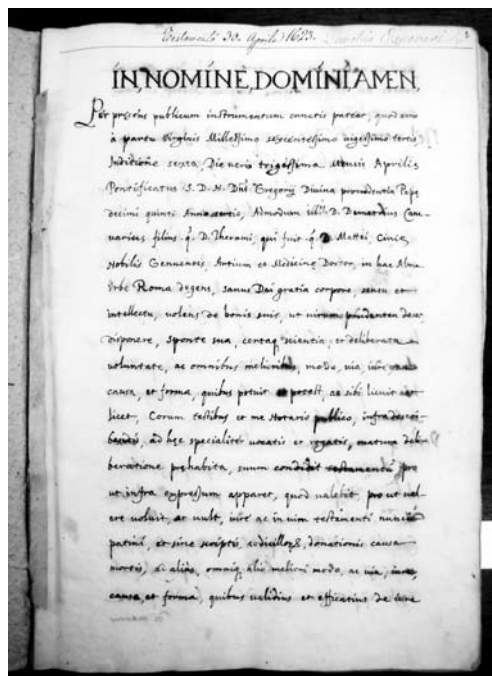 Testamentū 30. Aprilis 1623.
IN, NOMINE, DOMINI, AMEN,
Per præsens publicum instrumentum cunctis pateat, quod anno
à partu Virginis Millesimo sexcentesimo vigesimo tertio
Inditione sexta, Die verò trigesima Mensis Aprilis
Pontificatus S. D. N. Dñi Gregorij Divina providentia Papę
decimi quinti Anno tertio, Admodum D. Demetrius Can-
uarius filius q. D. Therami, qui fuit q. D. Mattei, Civis
Nobilis Genuensis, Artium et Medicinę Doctor, in hac Alma
Vrbe Roma degens, sanus Dei gratia corpore, sensu et
intellectu, volens de bonis suis, ut virum prudentem decet
disponere, sponte sua, certaq scientia, et deliberata
voluntate, ac omnibus melioribus, modo, via, iure
causa, et forma, quibus potuit potest, ac sibi licuit aut
licet, Corum testibus et me Notario publico, infradescri-
ad hęc specialiter vocatis et rogatis, matura deli-
beratione pręhabita, suum condidit testamentū pro
ut infra expressum apparet, quod valebit, pro ut val-
ere voluit, ac vult, iure ac in vim testamenti nuncu-
pativi, et sine scriptis, codicillorū, donationis causa
mortis, ac alias, omniq alio meliori modo, ac via, iure,
causa, et forma, quibus validius et efficatius de iure